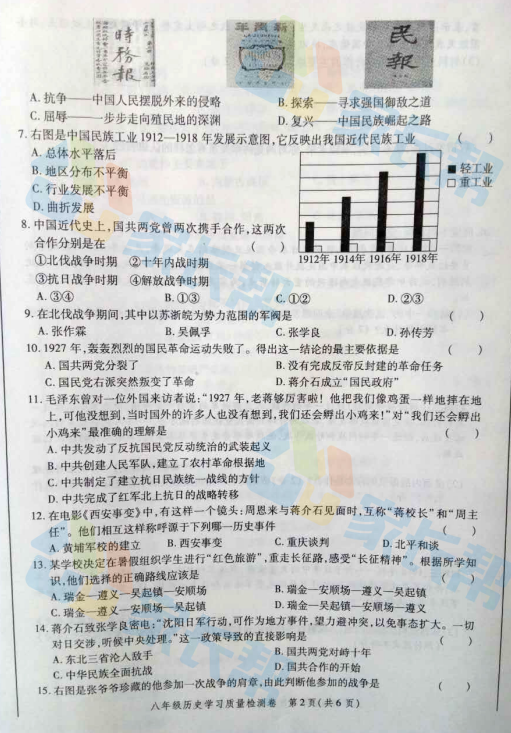 時務報
新青年
民報
A. 抗争——中国人民摆脱外来的侵略 B. 探索——寻求强国御敌之道
C. 屈辱——一步步走向殖民地的深渊 D. 复兴——中国民族崛起之路
7. 右图是中国民族工业1912—1918年发展示意图,它反映出我国近代民族工业 ( )
A. 总体水平落后
B. 地区分布不平衡
C. 行业发展不平衡
D. 曲折发展
轻工业
重工业
1912年 1914年 1916年 1918年
8. 中国近代史上,国共两党曾两次携手合作,这两
次合作分别是在 ( )
①北伐战争时期 ②十年内战时期
③抗日战争时期 ④解放战争时期
A. ③④ B. ①③ C. ①② D. ②③
9. 在北伐战争期间,其中以苏浙皖为势力范围的军阀是 ( )
A. 张作霖 B. 吴佩孚 C. 张学良 D. 孙传芳
10. 1927年,轰轰烈烈的国民革命运动失败了。得出这一结论的最主要依据是 ( )
A. 国共两党分裂了 B. 没有完成反帝反封建的革命任务
C. 国民党右派突然叛变了革命 D. 蒋介石成立“国民政府”
11. 毛泽东曾对一位外国来访者说:“1927年,老蒋够厉害啦!他把我们像鸡蛋一样地摔在地
上,可他没想到,当时国外的许多人也没有想到,我们还会孵出小鸡来!”对“我们还会孵出
小鸡来”最准确的理解是 ( )
A. 中共发动了反抗国民党反动统治的武装起义
B. 中共创建人民军队,建立了农村革命根据地
C. 中共制定了建立抗日民族统一战线的方针
D. 中共完成了红军北上抗日的战略转移
12. 在电影《西安事变》中,有这样一个镜头:周恩来与蒋介石见面时,互称“蒋校长”和“周主
任”。他们相互这样称呼源于下列哪一历史事件 ( )
A. 黄埔军校的建立 B. 西安事变 C. 重庆谈判 D. 北平和谈
13. 某学校决定在暑假组织学生进行“红色旅游”,重走长征路,感受“长征精神”。根据所学知
识,他们选择的正确路线应该是 ( )
A. 瑞金—遵义—吴起镇—安顺场 B. 瑞金—安顺场—遵义—吴起镇
C. 瑞金—遵义—安顺场—吴起镇 D. 瑞金—吴起镇—安顺场—遵义
14. 蒋介石致张学良密电:“沈阳日军行动,可作为地方事件,望力避冲突,以免事态扩大。一切
对日交涉,听候中央处理。”这一政策导致的直接影响是 ( )
A. 东北三省沦人敌手 B. 国共两党对峙十年
C. 中华民族全面抗战 D. 国共合作的开始
15. 右图是张爷爷珍藏的他参加一次战争的肩章,由此判断他参加的战争是 ( )
八年级历史学习质量检测卷 第2页(共6页)
家长帮